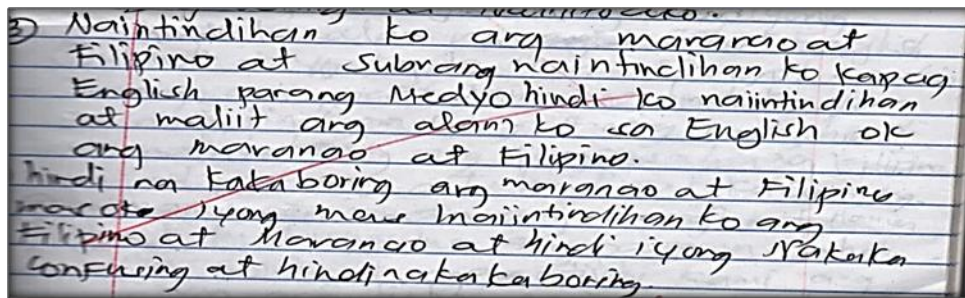 3) Naintindihan ko ang maranao at
Filipino at subrang naintindihan ko kapag
English parang Medyo hindi ko naiintindihan
at maliit ang alam ko sa English ok
ang maranao at Filipino.
hindi na kakaboring ang maranao at Filipino
iyong mas maiintindihan ko ang
Filipino at Maranao at hindi iyong nakaka
confusing at hindi nakakaboring.